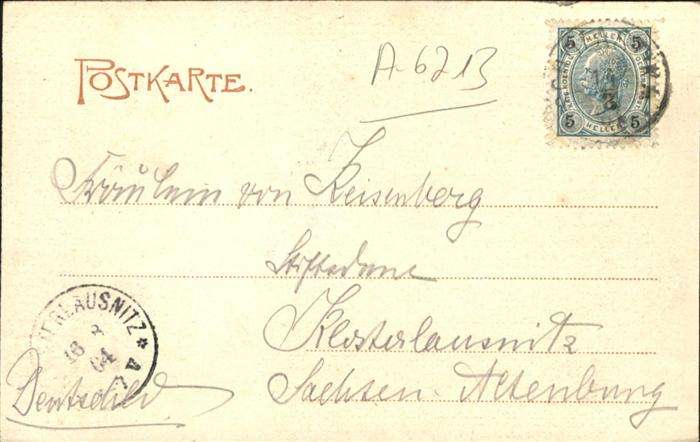 POSTKARTE.
A-6213
5 HELLER 5
5 HELLER 5
Fräulein von Keisenberg
Stiftsdame
Klosterlausnitz
Sachsen-Altenburg
KLOSTERLAUSNITZ * A
16 3
04
Deutschld